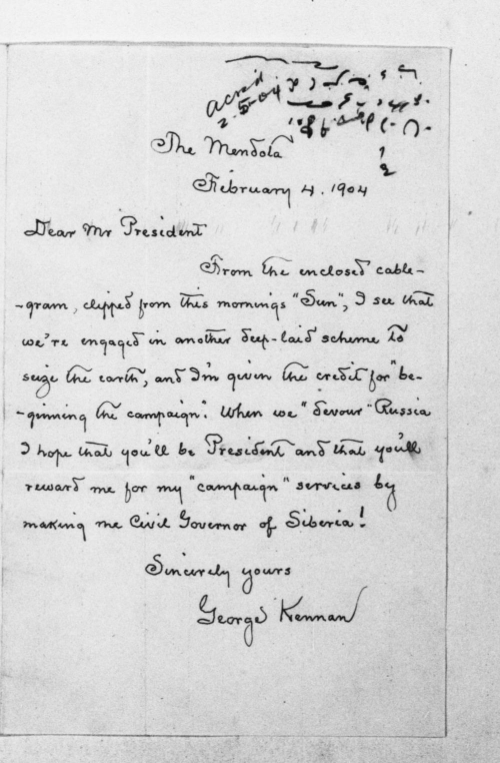 Ackd
2-5-04
The Mendota
February 4. 1904
Dear Mr President
From the enclosed cable-
-gram, clipped from this mornings "Sun", I see that
we're engaged in another deep-laid scheme to
seize the earth, and I'm given the credit for "be-
-ginning the campaign". When we "devour" Russia
I hope that you'll be President and that you'll
reward me for my "campaign" services by
making me Civil Governor of Siberia!
Sincerely yours
George Kennan